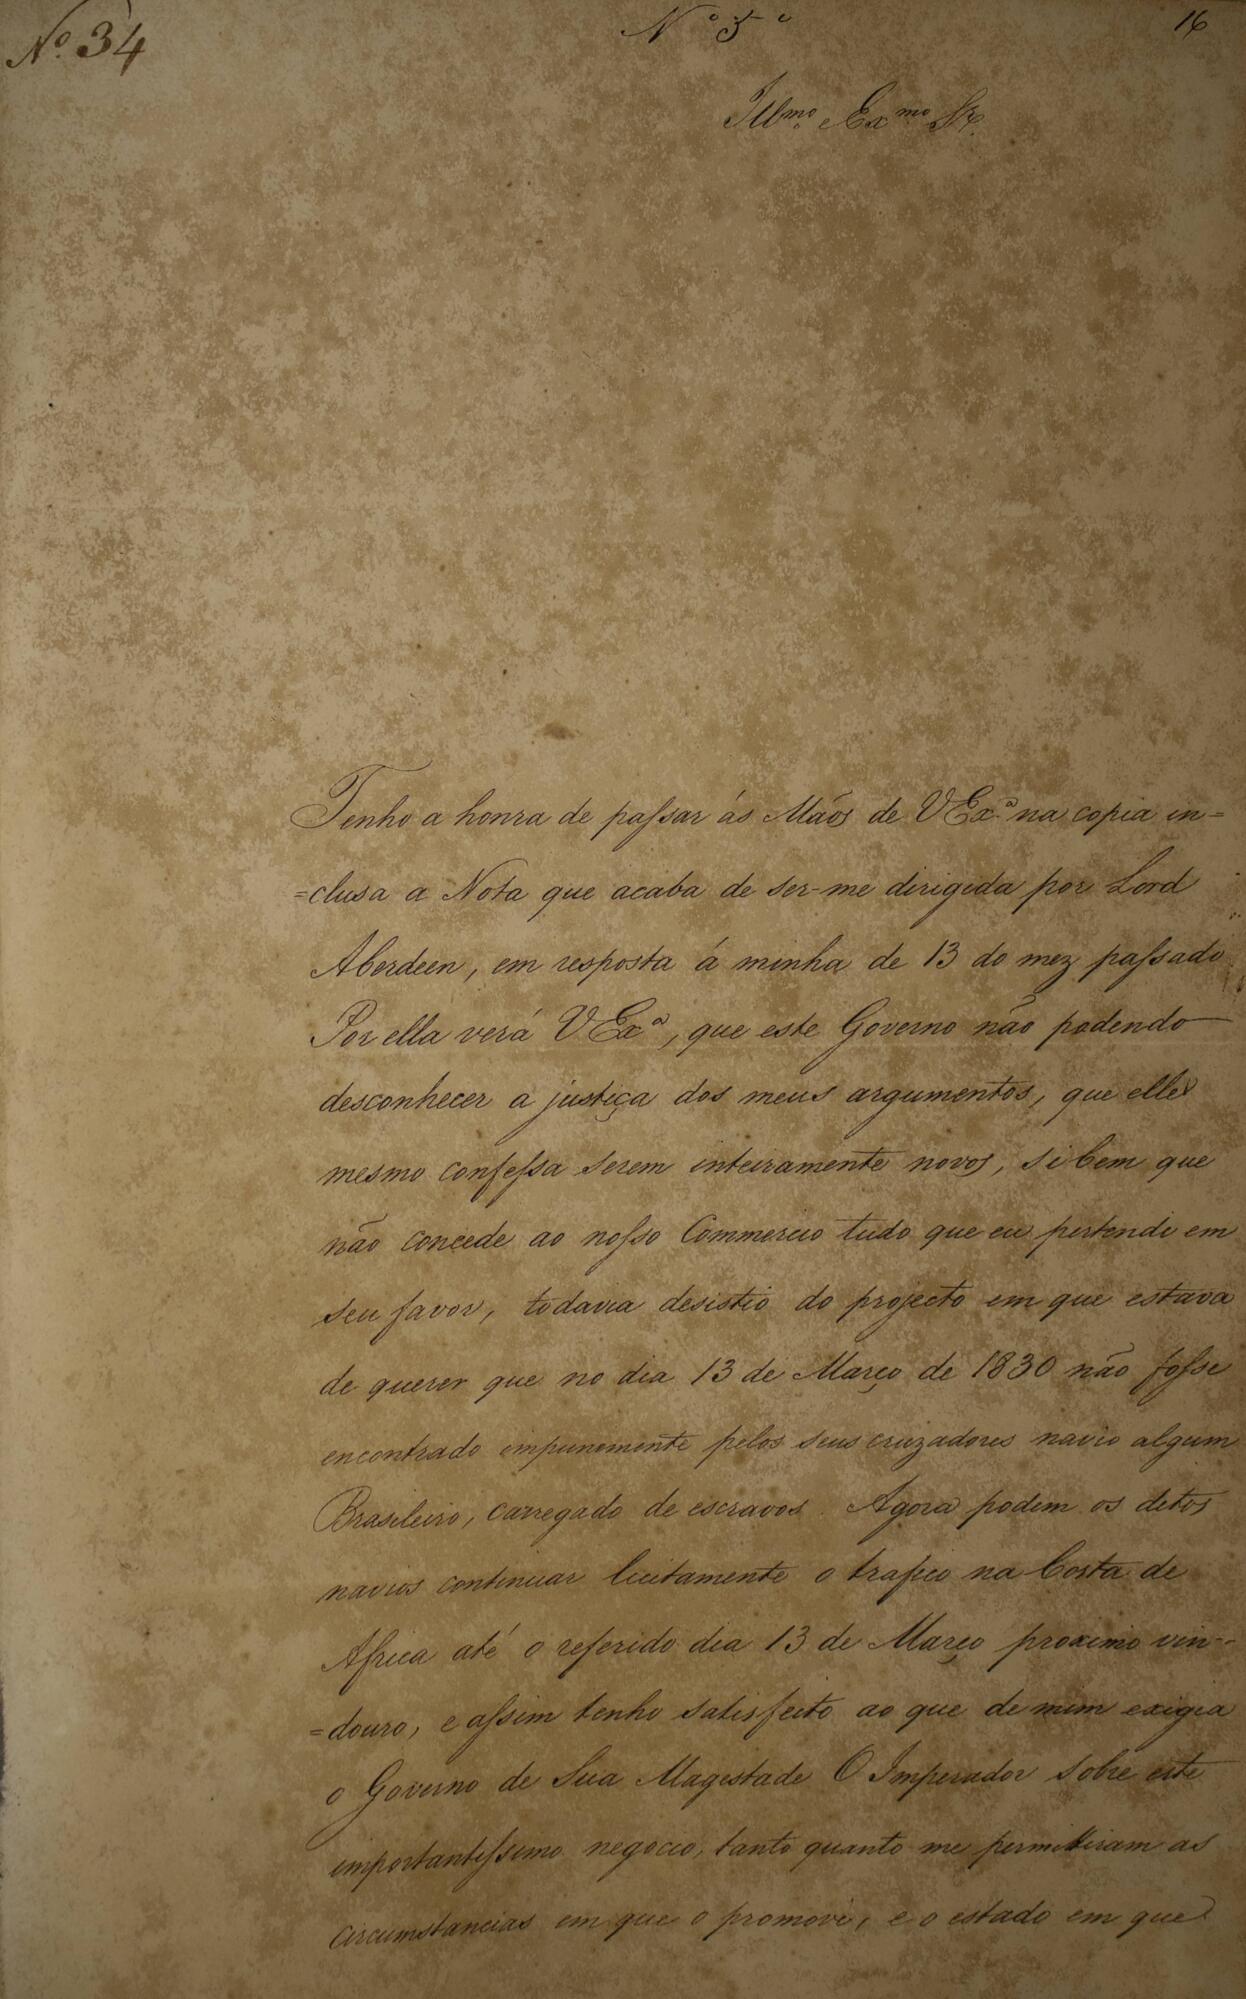 Nº 34
Nº 5º
16
Illmo. Exmo Sr.
Tenho a honra de passar ás Mãos de V Exª na copia in=
=clusa a Nota que acaba de ser-me dirigida por Lord
Aberdeen, em resposta á minha de 13 do mez passado
Por ella verá V Exª, que este Governo não podendo
desconhecer a justiça dos meus argumentos, que elle
mesmo confessa serem inteiramente novos, si bem que
não concede ao nosso Commercio tudo que eu pertendi em
seu favor, todavia desistio do projecto em que estava
de querer que no dia 13 de Março de 1830 não fosse
encontrado impunemente pelos seus cruzadores navio algum
Brasileiro, carregado de escravos. Agora podem os ditos
navios continuar licitamente o trafico na Costa de
Africa até o referido dia 13 de Março proximo vin-
=douro, e assim tenho satisfeito ao que de mim exigia
o Governo de Sua Magestade O Imperador sobre este
importantissimo negocio, tanto quanto me permittiram as
circumstancias em que o promovi, e o estado em que